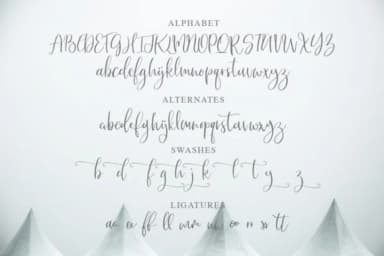 ALPHABET
ABCDEFGHIJKLMNOPQRSTUVWXYZ
abcdefghijklmnopqrstuvwxyz
ALTERNATES
abcdefghijklmnopqrstuvwxyz
SWASHES
b d f g h j k l t y z
LIGATURES
ff ll mm oo rr ss tt